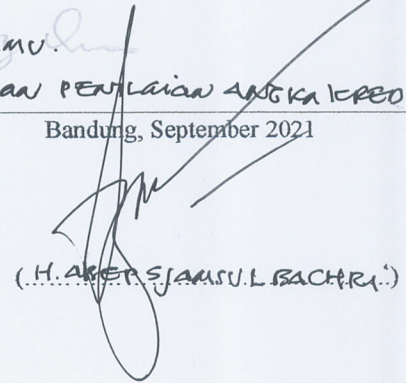 MU.
AN PENILAIAN ANGKA KREO
Bandung, September 2021
(H. ASEP SJAMSUL BACHRI)